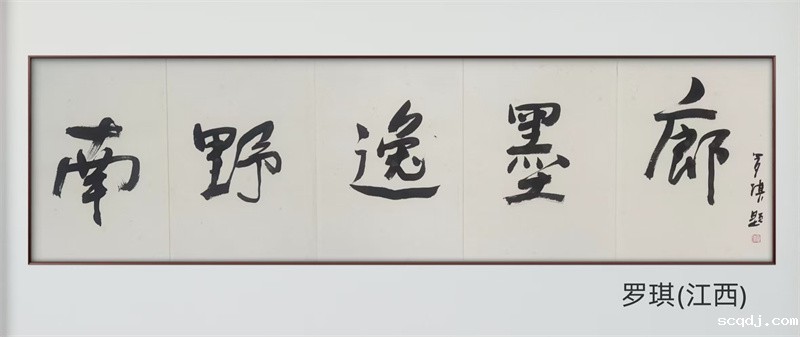 南野逸墨廊
罗琪题
罗琪(江西)
scqdj.com